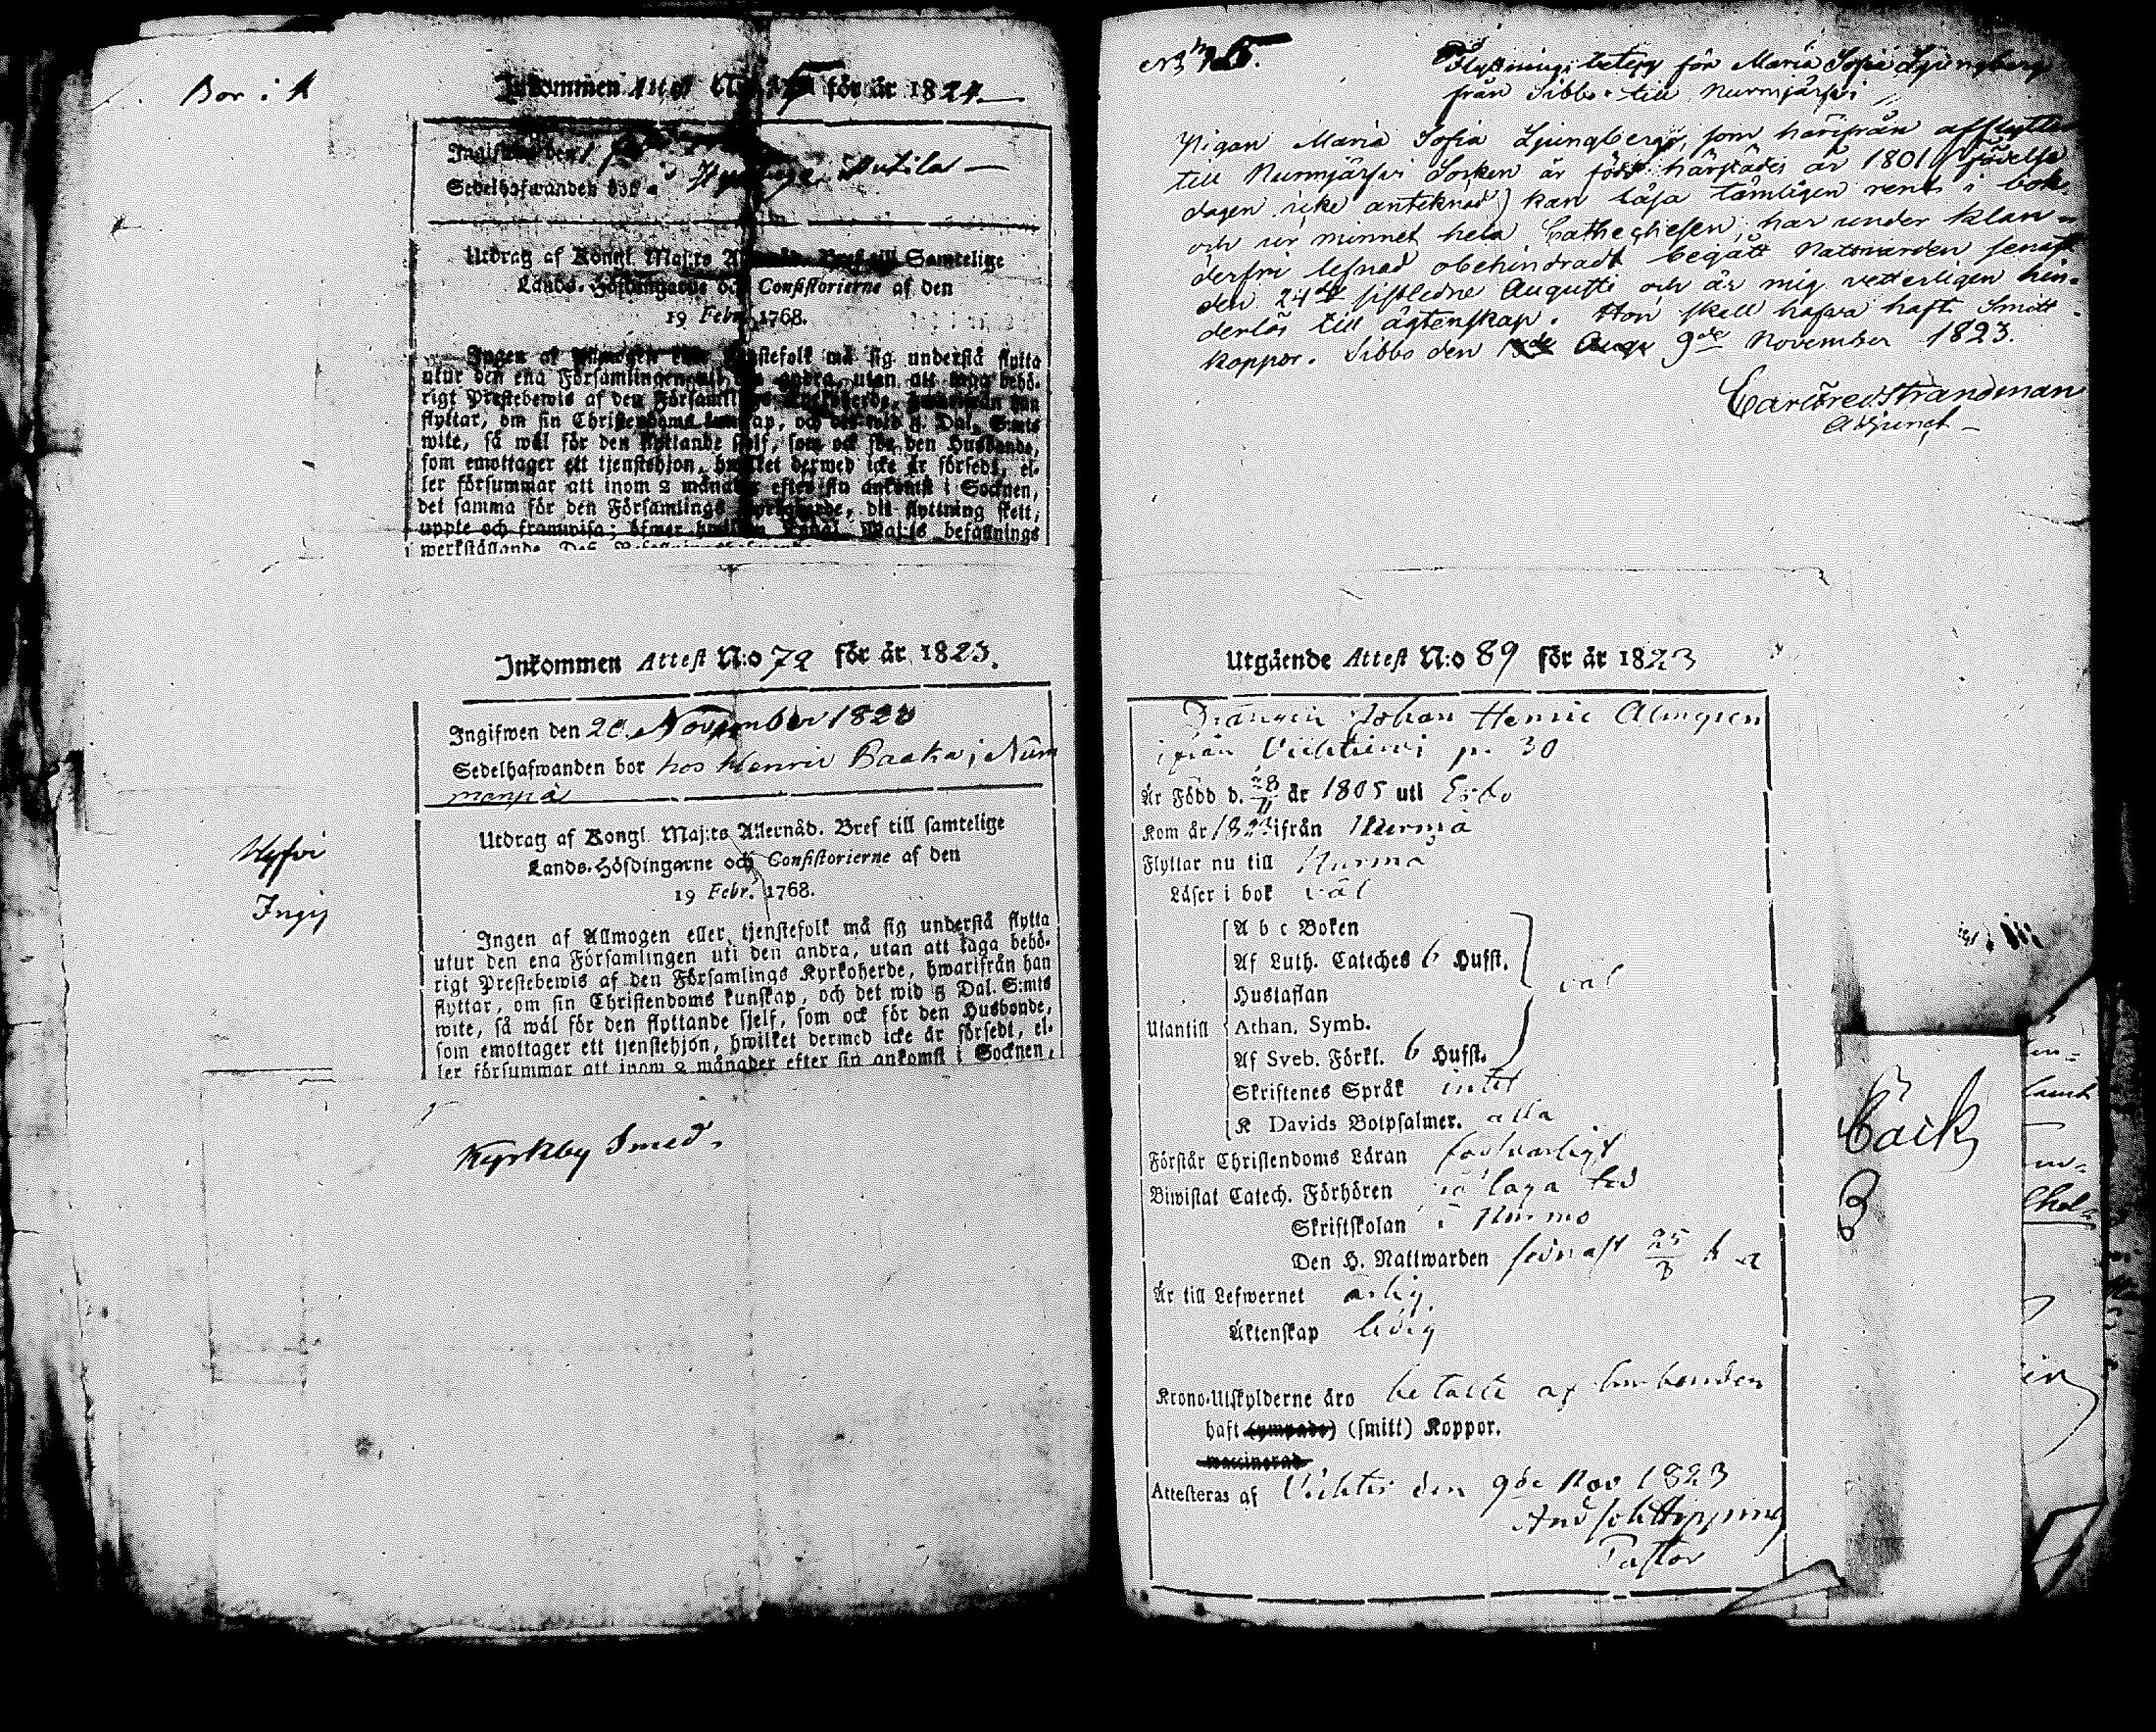 Bor i
Inkommen Attest N:o för år 1824.
Ingifwen den
Sedelhafwanden bor i Hyvinge Autila
Utdrag af Kongl. Maj:ts Allernåd. Bref till Samtelige
Lands-Höfdingarne och Consistorierne af den
19 Febr. 1768.
Ingen af Allmogen eller tjenstefolk må sig understå flytta
utur den ena Församlingen uti den andra, utan att taga behö-
rigt Prestebewis af den Församlings Kyrkoherde, hwarifrån han
flyttar, om sin Christendoms kunskap, och det wid 5 Dal. S:mts
wite, så wäl för den flyttande sjelf, som ock för den Husbonde,
som emottager ett tjenstehjon, hwilket dermed icke är försedt, el-
ler försummar att inom 2 månader efter sin ankomst i Socknen,
det samma för den Församlings Kyrkoherde, dit flyttning skett,
uppte och framwisa; öfwer hwilken Kongl. Maj:ts befallnings
werkställande
Inkommen Attest N:o 72 för år 1823.
Ingifwen den 20 November 1823
Sedelhafwanden bor hos Henric Baaka i Num
manpä
Utdrag af Kongl. Maj:ts Allernåd. Bref till samtelige
Lands-Höfdingarne och Consistorierne af den
19 Febr. 1768.
Ingen af Allmogen eller tjenstefolk må sig understå flytta
utur den ena Församlingen uti den andra, utan att taga behö-
rigt Prestebewis af den Församlings Kyrkoherde, hwarifrån han
flyttar, om sin Christendoms kunskap, och det wid 5 Dal. S:mts
wite, så wäl för den flyttande sjelf, som ock för den Husbonde,
som emottager ett tjenstehjon, hwilket dermed icke är försedt, el-
ler försummar att inom 2 månader efter sin ankomst i Socknen,
Ingif
Kyrkby Smed.
Flyttnings betyg för Maria Sofia Ljungberg
från Sibbo till Nurmjärfvi
Pigan Maria Sofia Ljungberg, som härifrån afflyttar
till Nurmjärfvi Socken är född härstädes år 1801 (födelse
dagen icke antecknad) kan läsa tämligen rent i bok
och ur minnet hela Cathechesen, har under klan-
derfri lefnad obehindradt begått Nattvarden senast
den 24de sistledne Augusti och är mig vetterligen hin-
derlös till ägtenskap. Hon skall hafva haft Smitt
koppor. Sibbo den 9de November 1823.
Carl Fred Strandman
Adjunct
Utgående Attest N:o 89 för år 1823
Drängen Johan Henric Almgren
ifrån Vichtis p. 30
Är Född d. 28/11 år 1805 uti Esbo
Kom år 1823 ifrån Nurmä
Flyttar nu till Nurmä
Läser i bok väl
A b c Boken
Af Luth. Cateches 6 Hufst.
Hustaflan
väl
Utantill Athan. Symb.
Af Sveb. Förkl. 6 Hufst.
Skriftenes Språk intet
K Davids Botpsalmer. alla
Förstår Christendoms Läran försvarligt
Biwistat Catech. Förhören på laga tid
Skriftskolan i Nurmo
Den H. Nattwarden sednast 25/3 h a
Är till Lefwernet ärlig
Äktenskap ledig
Krono-Utskylderne äro betalte af husbonden
haft (ympade) (smitt) Koppor.
waccinerad
Attesteras af Vichtis den 9de Nov 1823
And Joh Hipping
Pastor
Bäck
3